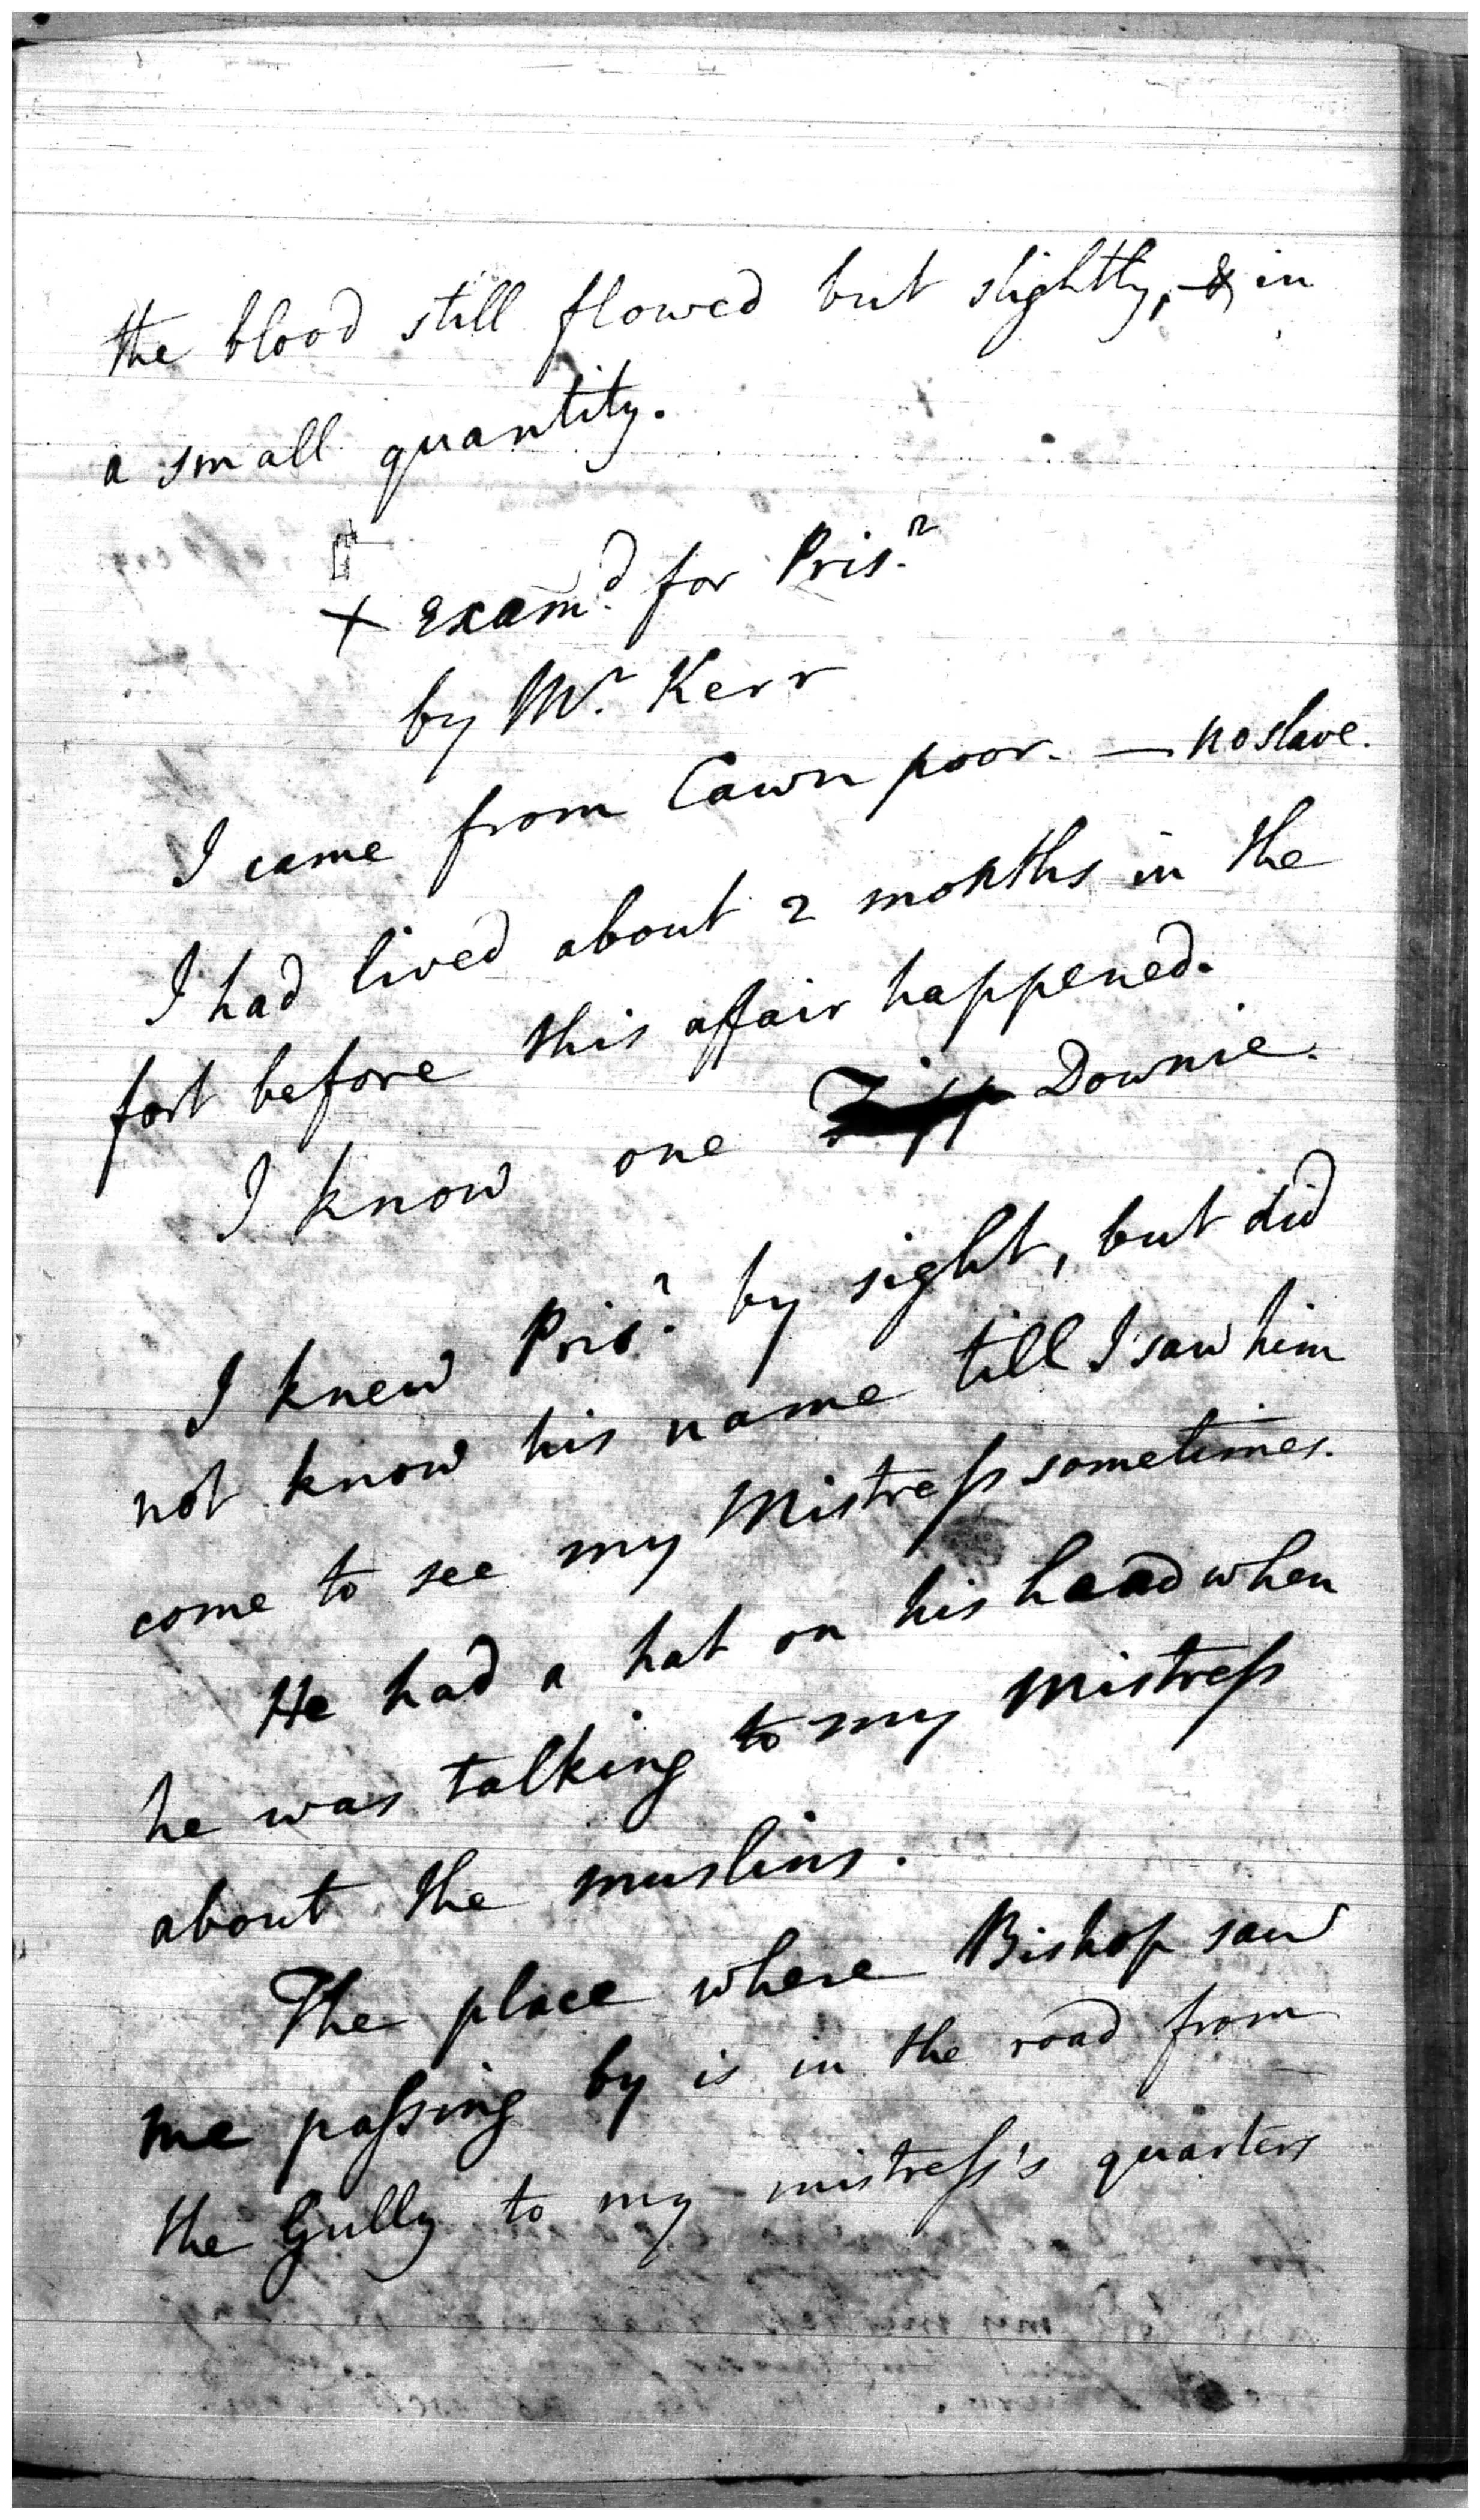 the blood still flowed but slightly, & in
a small quantity.
+ Exam.d for Pris.r
by Mr. Kerr
I came from Cawnpoor. — no slave.
I had lived about 2 months in the
fort before this affair happened.
I know one Downie.
I knew Pris.r by sight, but did
not know his name till I saw him
come to see my Mistress sometimes.
He had a hat on his head when
he was talking to my Mistress
about the muslins.
The place where Bishop saw
me passing by is in the road from
the Gully to my mistress's quarters